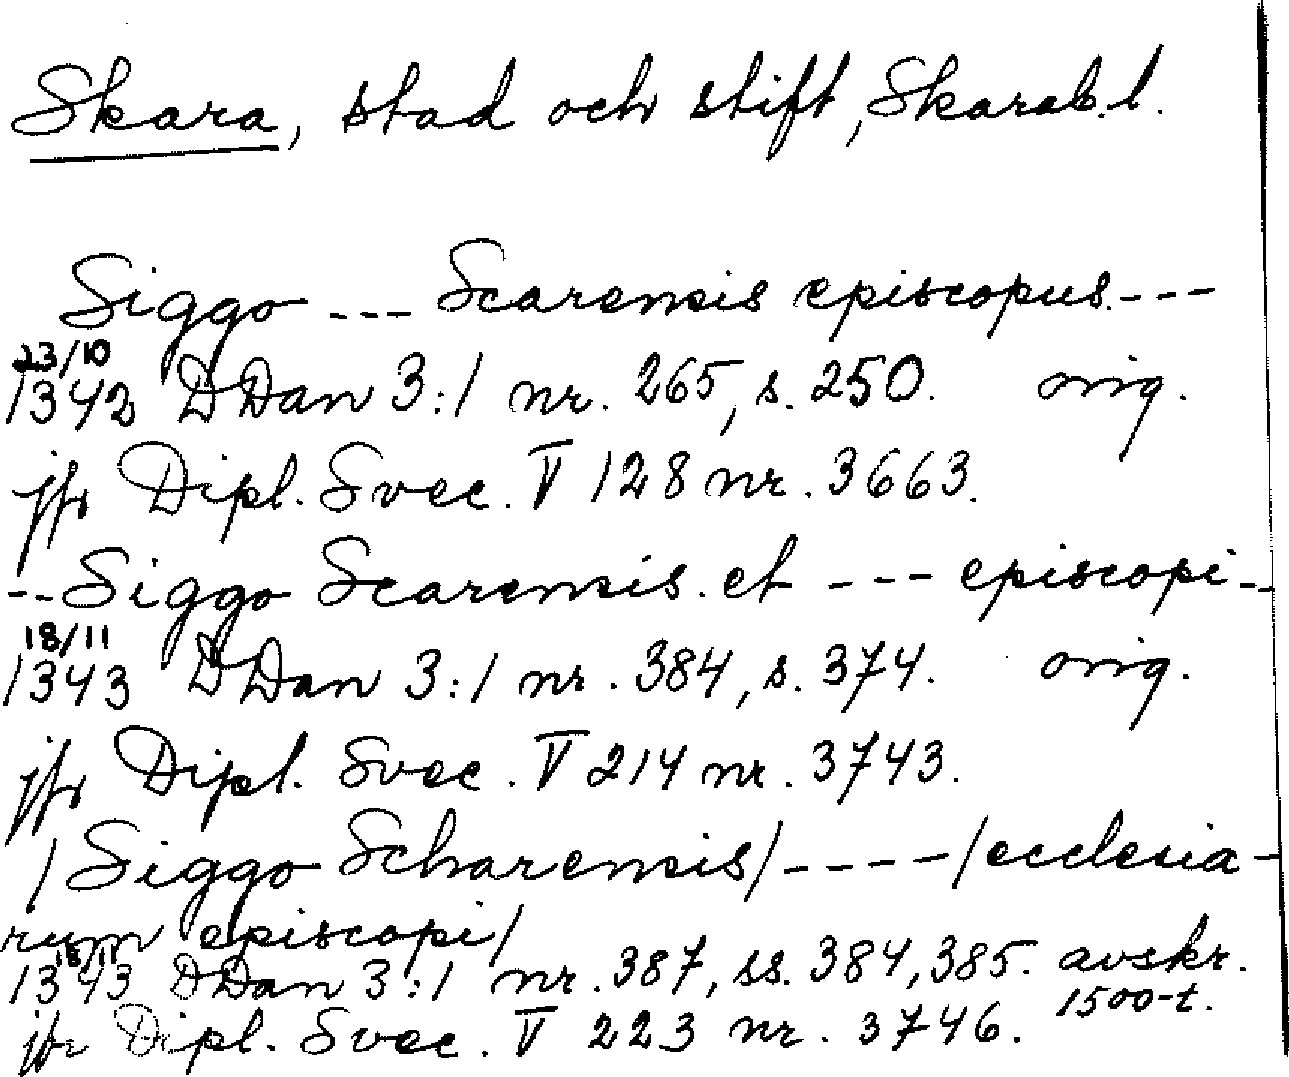 Skara, stad och stift, Skarab.l.
Siggo --- Scarensis episcopus.---
23/10
1342 DDan 3:1 nr. 265, s. 250. orig.
jfr Dipl. Svec. V 128 nr. 3663.
--Siggo Scarensis. et --- episcopi--
18/11
1343 DDan 3:1 nr. 384, s. 374. orig.
jfr Dipl. Svec. V 214 nr. 3743.
/Siggo Scharensis/----/ecclesia-
rum episcopi/
18/11
1343 DDan 3:1 nr. 387, ss. 384, 385. avskr.
1500-t.
jfr Dipl. Svec. V 223 nr. 3746.